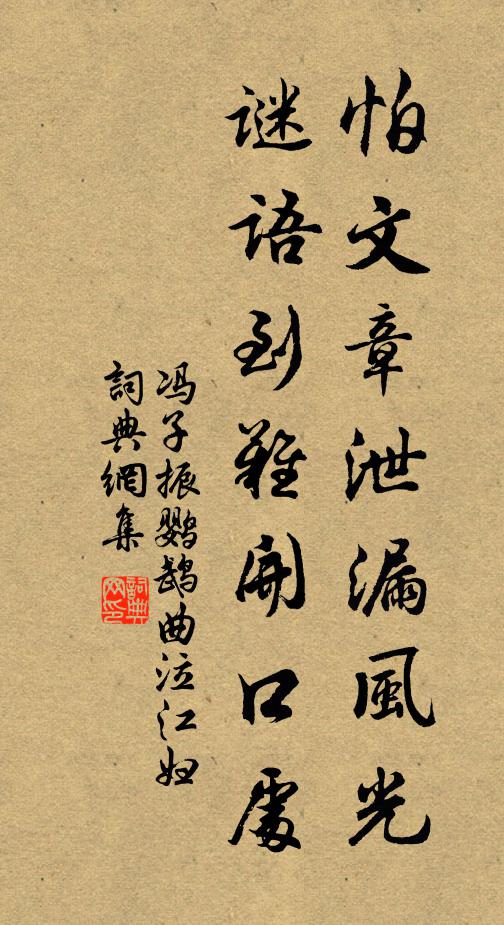 怕文章泄漏風光
谜语到難開口處
冯子振鹦鹉曲泣江妇
詞典網集
詞典网印